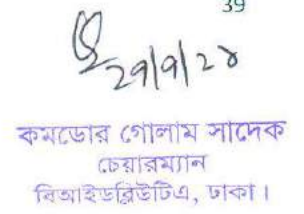 39
কমডোর গোলাম সাদেক
চেয়ারম্যান
বিআইডব্লিউটিএ, ঢাকা।